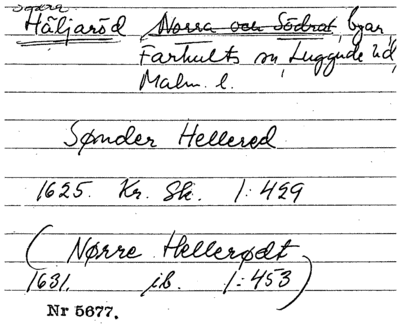 Södra
Häljaröd Norra och Södra, byar,
Farhults sn, Luggude hd,
Malm. l.
Sønder Hellerød
1625. Kr. Sk. 1:429
(Nørre Hellerødt
1631. ib. 1:453)
Nr 5677.